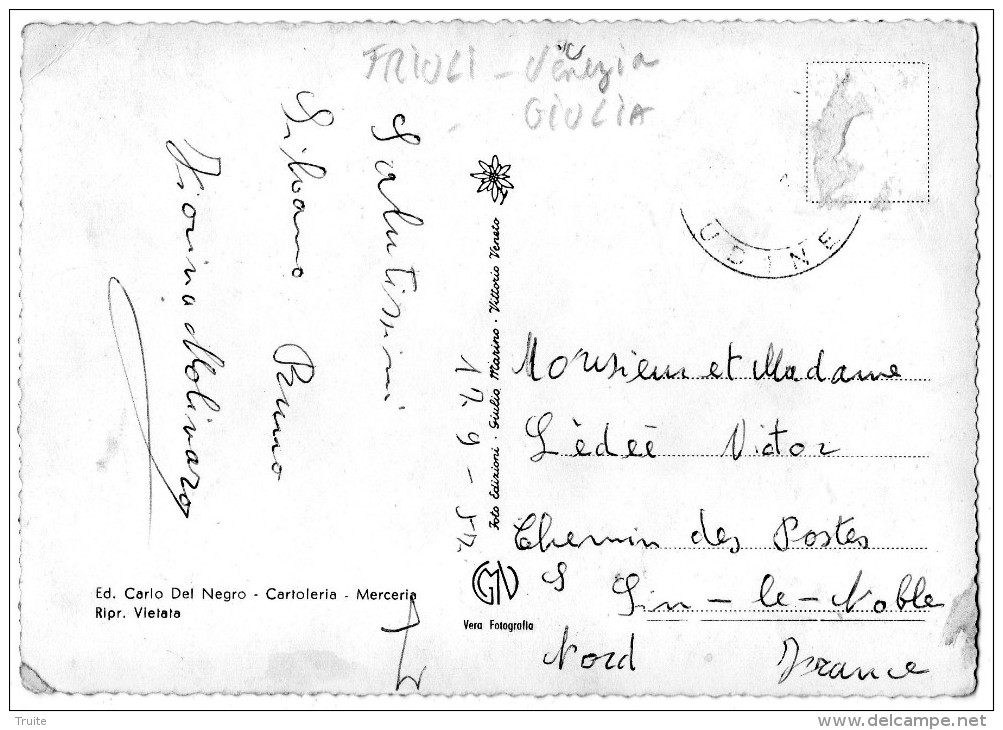 FRIULI - Venezia
GIULIA
Salutissimi
Silvano Bruno
Fiorina Molinaro
17.9-57.
Foto Edizioni - Giulio Marino - Vittorio Veneto
UDINE
Monsieur et Madame
Lèdeè Victor
Chemin des Postes
Sin-le-Noble
Nord France
Ed. Carlo Del Negro - Cartoleria - Merceria
Ripr. Vietata
Vera Fotografia
Truite
www.delcampe.net